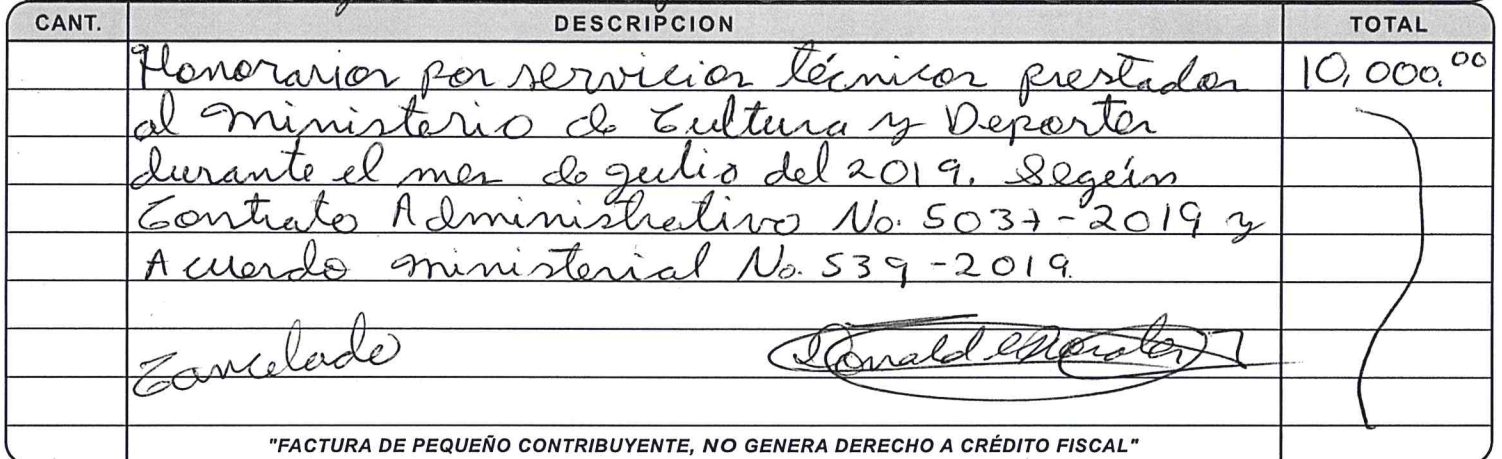 CANT. DESCRIPCION TOTAL
Honorarios por servicios técnicos prestados 10,000.00
al Ministerio de Cultura y Deportes
durante el mes de julio del 2019. Según
Contrato Administrativo No. 5037-2019 y
Acuerdo Ministerial No. 539-2019.
Cancelado Donald Morales
"FACTURA DE PEQUEÑO CONTRIBUYENTE, NO GENERA DERECHO A CRÉDITO FISCAL"